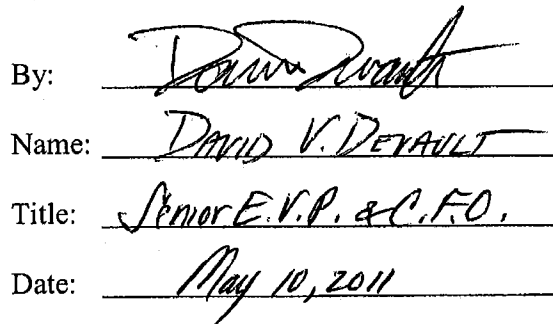 By: David Devault
Name: DAVID V. DEVAULT
Title: Senior E.V.P. & C.F.O.
Date: May 10, 2011